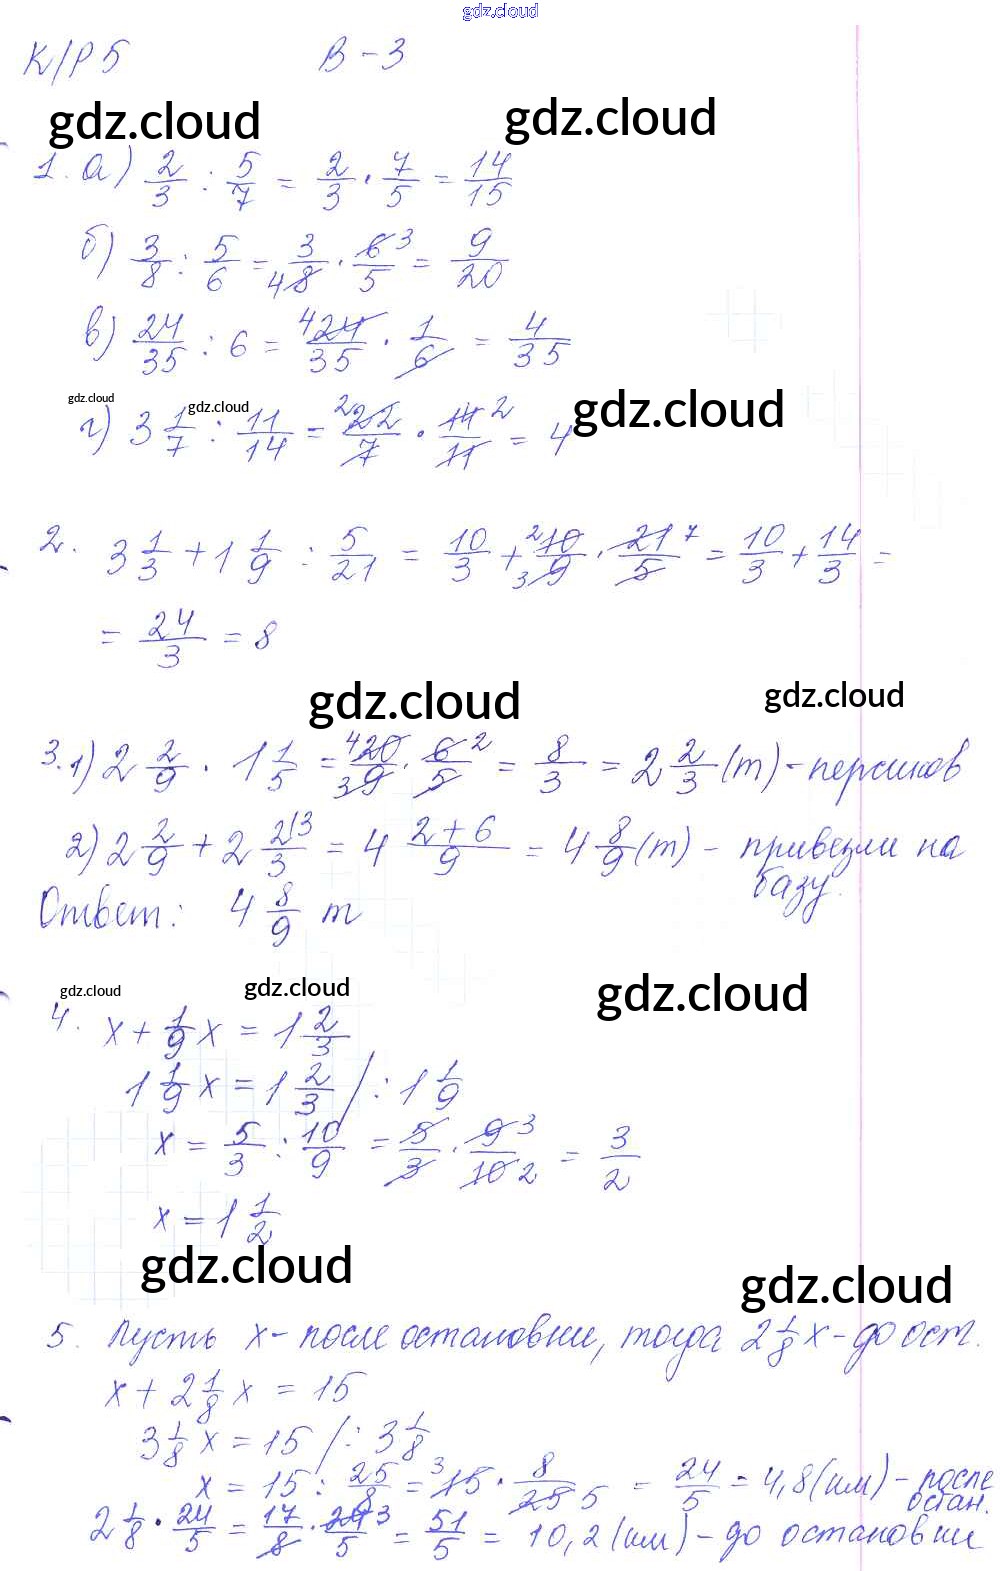 gdz.cloud
К/Р 5 В-3
gdz.cloud gdz.cloud
1. а) 2/3 : 5/7 = 2/3 · 7/5 = 14/15
б) 3/8 : 5/6 = 3/4 8 · 6 3/5 = 9/20
в) 24/35 : 6 = 4 24/35 · 1/6 = 4/35
gdz.cloud gdz.cloud gdz.cloud
г) 3 1/7 : 11/14 = 2 22/7 · 14 2/11 = 4
2. 3 1/3 + 1 1/9 : 5/21 = 10/3 + 2 10/3 9 · 21 7/5 = 10/3 + 14/3 =
= 24/3 = 8
gdz.cloud gdz.cloud
3. 1) 2 2/9 · 1 1/5 = 4 20/3 9 · 6 2/5 = 8/3 = 2 2/3 (т) - персиков
2) 2 2/9 + 2 2 (3/3 = 4 2+6/9 = 4 8/9 (т) - привезли на
базу.
Ответ: 4 8/9 т
gdz.cloud gdz.cloud gdz.cloud
4. x + 1/9 x = 1 2/3
1 1/9 x = 1 2/3 / : 1 1/9
x = 5/3 : 10/9 = 5/3 · 9 3/10 2 = 3/2
x = 1 1/2
gdz.cloud gdz.cloud
5. Пусть x - после остановки, тогда 2 1/8 x - до ост.
x + 2 1/8 x = 15
3 1/8 x = 15 / : 3 1/8
x = 15 : 25/8 = 3 15 · 8/25 5 = 24/5 = 4,8 (км) - после
остан.
2 1/8 · 24/5 = 17/8 · 24 3/5 = 51/5 = 10,2 (км) - до остановки